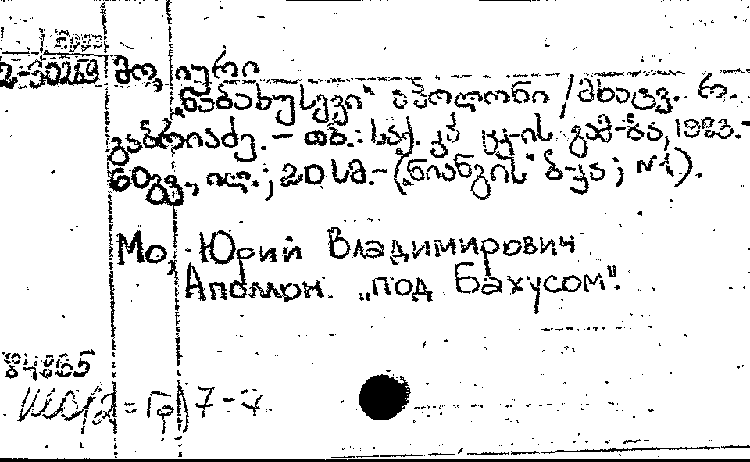 2-30269 მო, იური
„ნაბახუსევი“ აპოლონი / მხატვ. რ.
გაბრიაძე. – თბ.: საქ. კპ ცკ-ის გამ-ბა, 1983.-
60გვ., ილ.; 20 სმ.- („ნიანგის“ ბ-კა; №1).
Мо, Юрий Владимирович
Аполлон „под Бахусом“.
84865